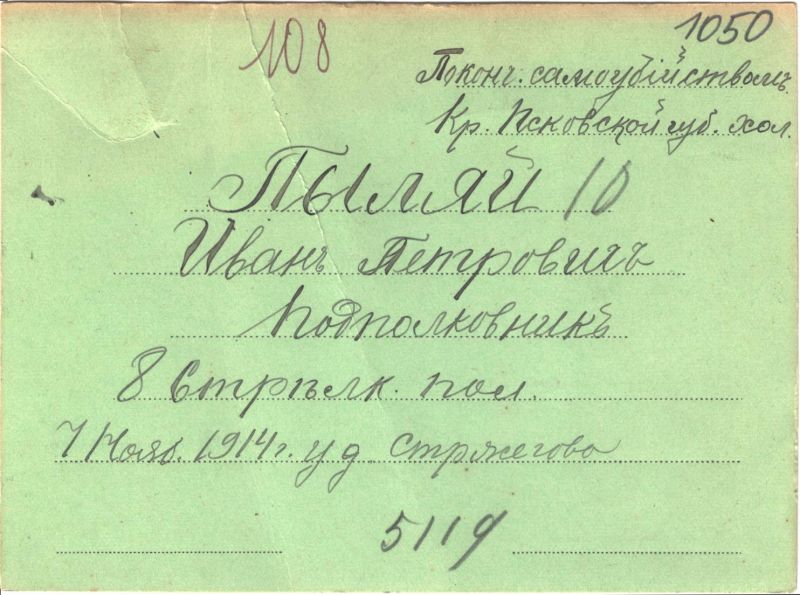 108
1050
Поконч. самоубійствомъ
Кр. Псковской губ. хол.
Пыляй 10
Иванъ Петровичъ
Подполковникъ
8 Стрѣлк. пол.
7 Нояб. 1914 г. у д. Стржегово
5119